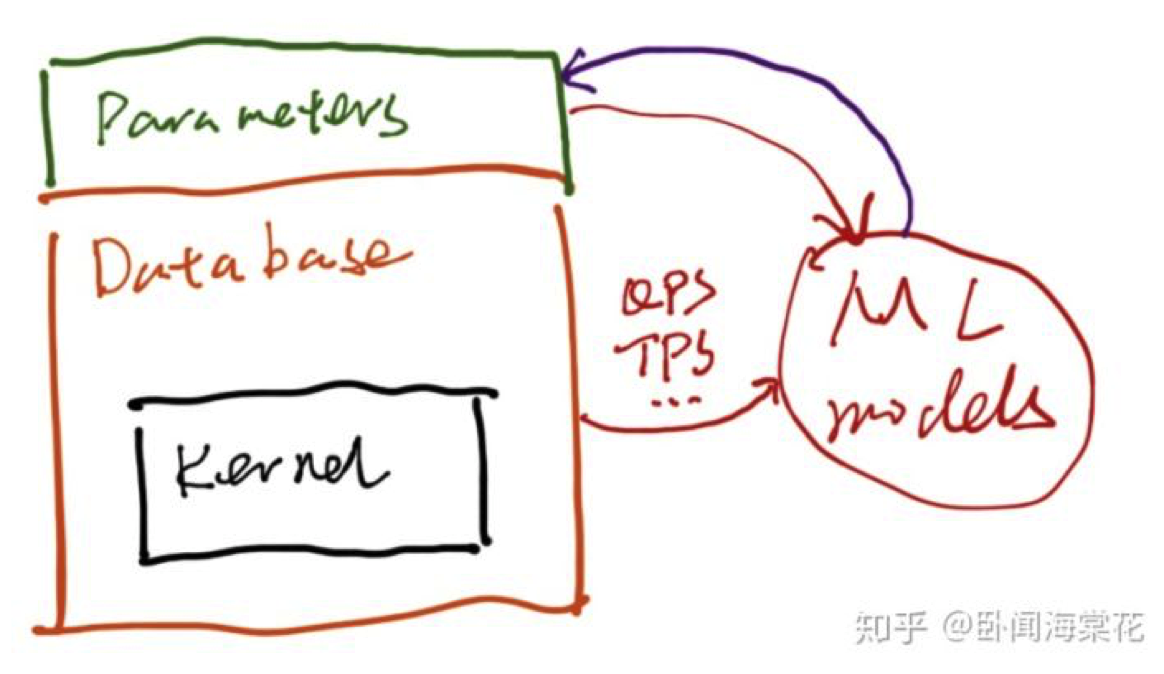 Parameters
Database
Kernel
QPS
TPS
...
ML
models
知乎 @卧闻海棠花